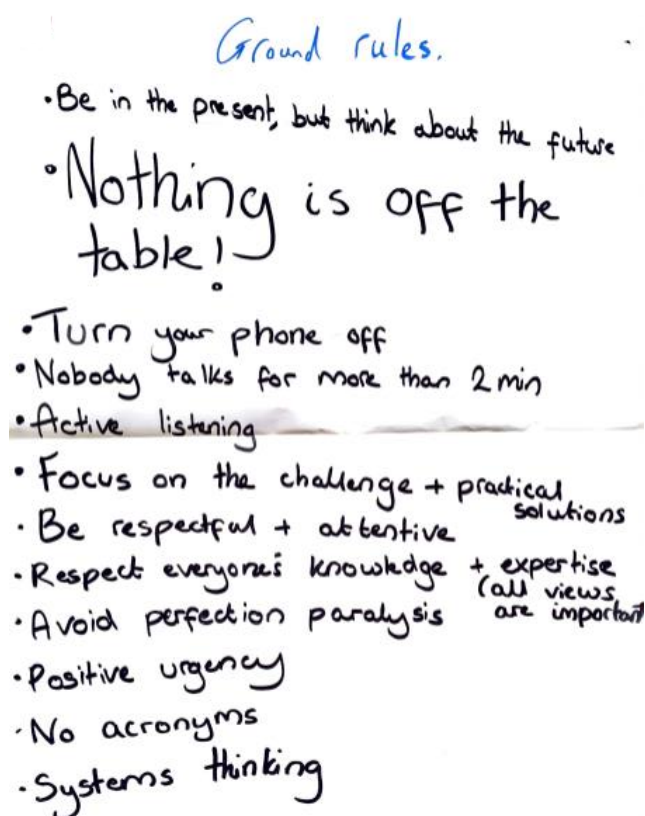 Ground rules.
• Be in the present, but think about the future
• Nothing is off the
table!
• Turn your phone off
• Nobody talks for more than 2 min
• Active listening
• Focus on the challenge + practical
solutions
• Be respectful + attentive
• Respect everyone's knowledge + expertise
(all views
are important
• Avoid perfection paralysis
• Positive urgency
• No acronyms
• Systems thinking